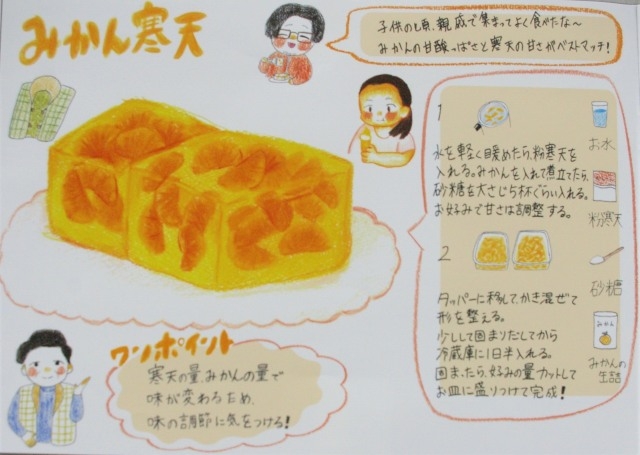 みかん寒天
子供の頃、親戚で集まってよく食べたな〜
みかんの甘酸っぱさと寒天の甘さがベストマッチ!
1
水を軽く暖めたら、粉寒天を
入れる。みかんを入れて煮立てたら、
砂糖を大さじ5杯ぐらい入れる。
お好みで甘さは調整する。
2
タッパーに移して、かき混ぜて
形を整える。
少しして固まりだしてから
冷蔵庫に1日半入れる。
固まったら、好みの量カットして
お皿に盛りつけて完成!
お水
粉寒天
砂糖
みかん
みかんの
缶詰
ワンポイント
寒天の量、みかんの量で
味が変わるため、
味の調節に気をつける!